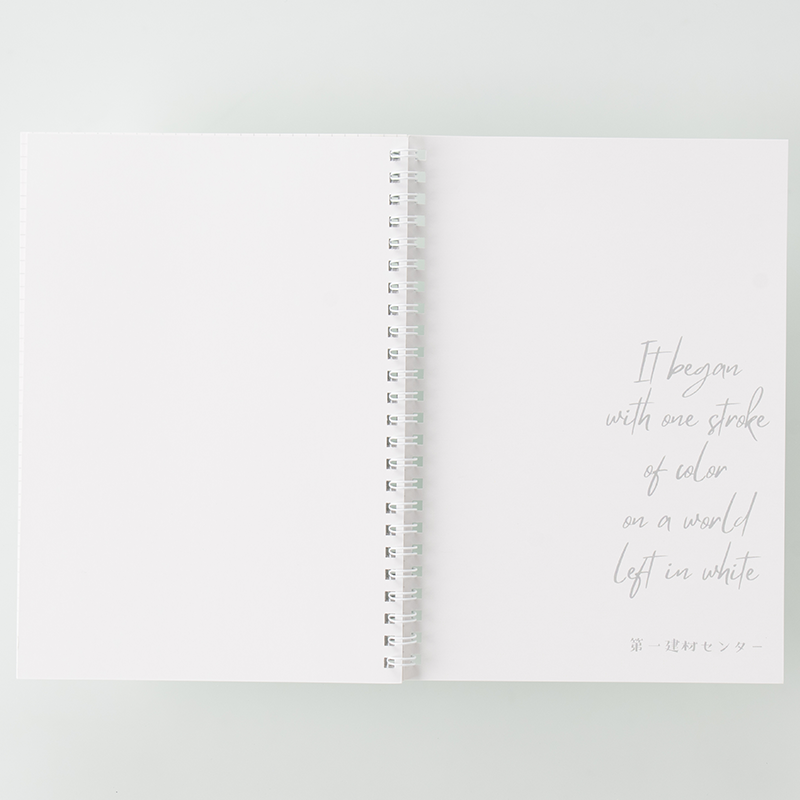 It began
with one stroke
of color
on a world
left in white
第一建材センター